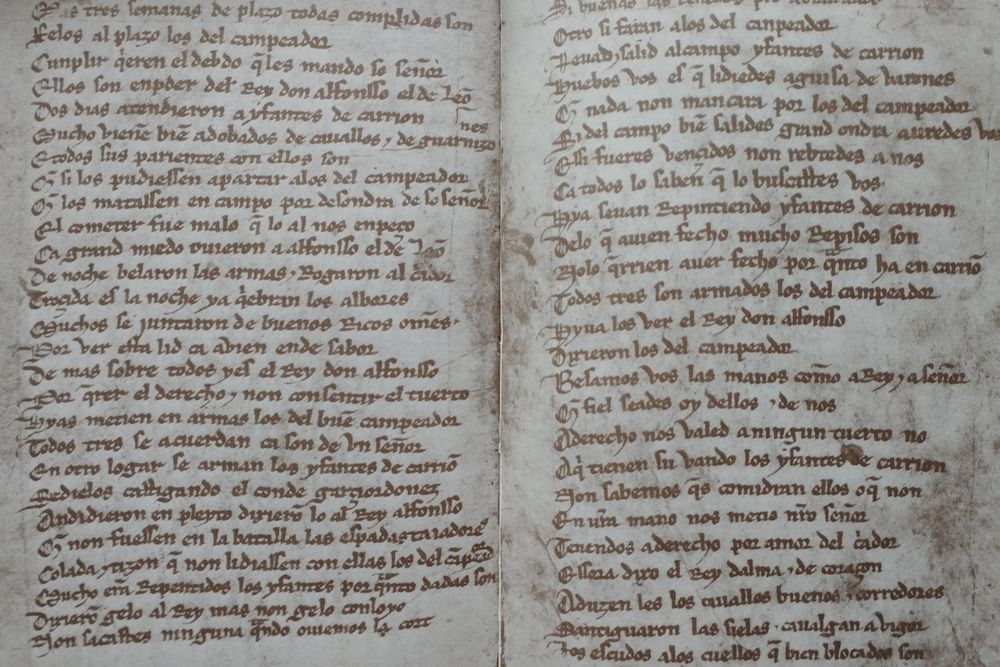 Las tres semanas de plazo todas complidas son
Felos al plazo los del campeador
Cunplir q̃eren el debdo q̃ les mando so señor
Ellos son enpoder del Rey don alfonsso el de Leõ
Dos dias atendieron a yfantes de carrion
Mucho vienẽ biẽ adobados de cauallos ⁊ de guarnizo
nes
E todos sus parientes con ellos son
Q̃ si los pudiessen apartar alos del campeador
Q̃ los matassen en campo por desondra de so señor
El cometer fue malo q̃ lo al nos enpeço
Ca grand miedo ouieron a alfonsso el de Leõ
De noche belaron las armas ⁊ Rogaron al c̃ador
Troçida es la noche ya q̃ebran los albores
Muchos se juntaron de buenos Ricos omẽs
Por ver esta lid ca avien ende sabor
De mas sobre todos yes el Rey don alfonsso
Por q̃rer el derecho ⁊ non consentir el tuerto
Hyas metien en armas los del buẽ campeador
Todos tres se acuerdan ca son de vn señor
En otro logar se arman los yfantes de carriõ
Sedielos castigando el conde garçiordonez
Andidieron en pleyto dixierõ lo al Rey alfonsso
Q̃ non fuessen en la batalla las espadas taiadores
Colada ⁊ tizon q̃ non lidiassen con ellas los del cãpeador
Mucho erã Repentidos los yfantes por q̃nto dadas son
Dixierõ gelo al Rey mas non gelo conloyo
Non sacastes ninguna q̃ndo ouiemos la cort
Si buenas las tenedes pro
Otro si faran alos del canpeador
Leuad ⁊ salid al campo yfantes de carrion
Huebos vos es q̃ lidiedes aguisa de varones
Q̃ nada non mancara por los del campeador
Si del campo biẽ salides grand ondra auredes vos
E si fueres vençidos non rebtedes a nos
Ca todos lo saben q̃ lo buscastes vos
Hya seuan Repintiendo yfantes de carrion
Delo q̃ auien fecho mucho Repisos son
Nolo q̃rrien auer fecho por q̃nto ha en carriõ
Todos tres son armados los del campeador
Hyua los ver el Rey don alfonsso
Dixieron los del campeador
Besamos vos las manos como a Rey ⁊ a señor
Q̃ fiel seades oy dellos ⁊ de nos
Aderecho nos valed a ningun tuerto no
Aq̃ tienen su vando los yfantes de carrion
Non sabemos q̃s comidran ellos o q̃ non
En vr̃a mano nos metio nr̃o señor
Tenendos a derecho por amor del c̃ador
Essora dixo el Rey dalma ⁊ de coraçon
Aduzen les los cauallos buenos ⁊ corredores
Santiguaron las sielas ⁊ caualgan a vigor
Los escudos alos cuellos q̃ bien blocados son